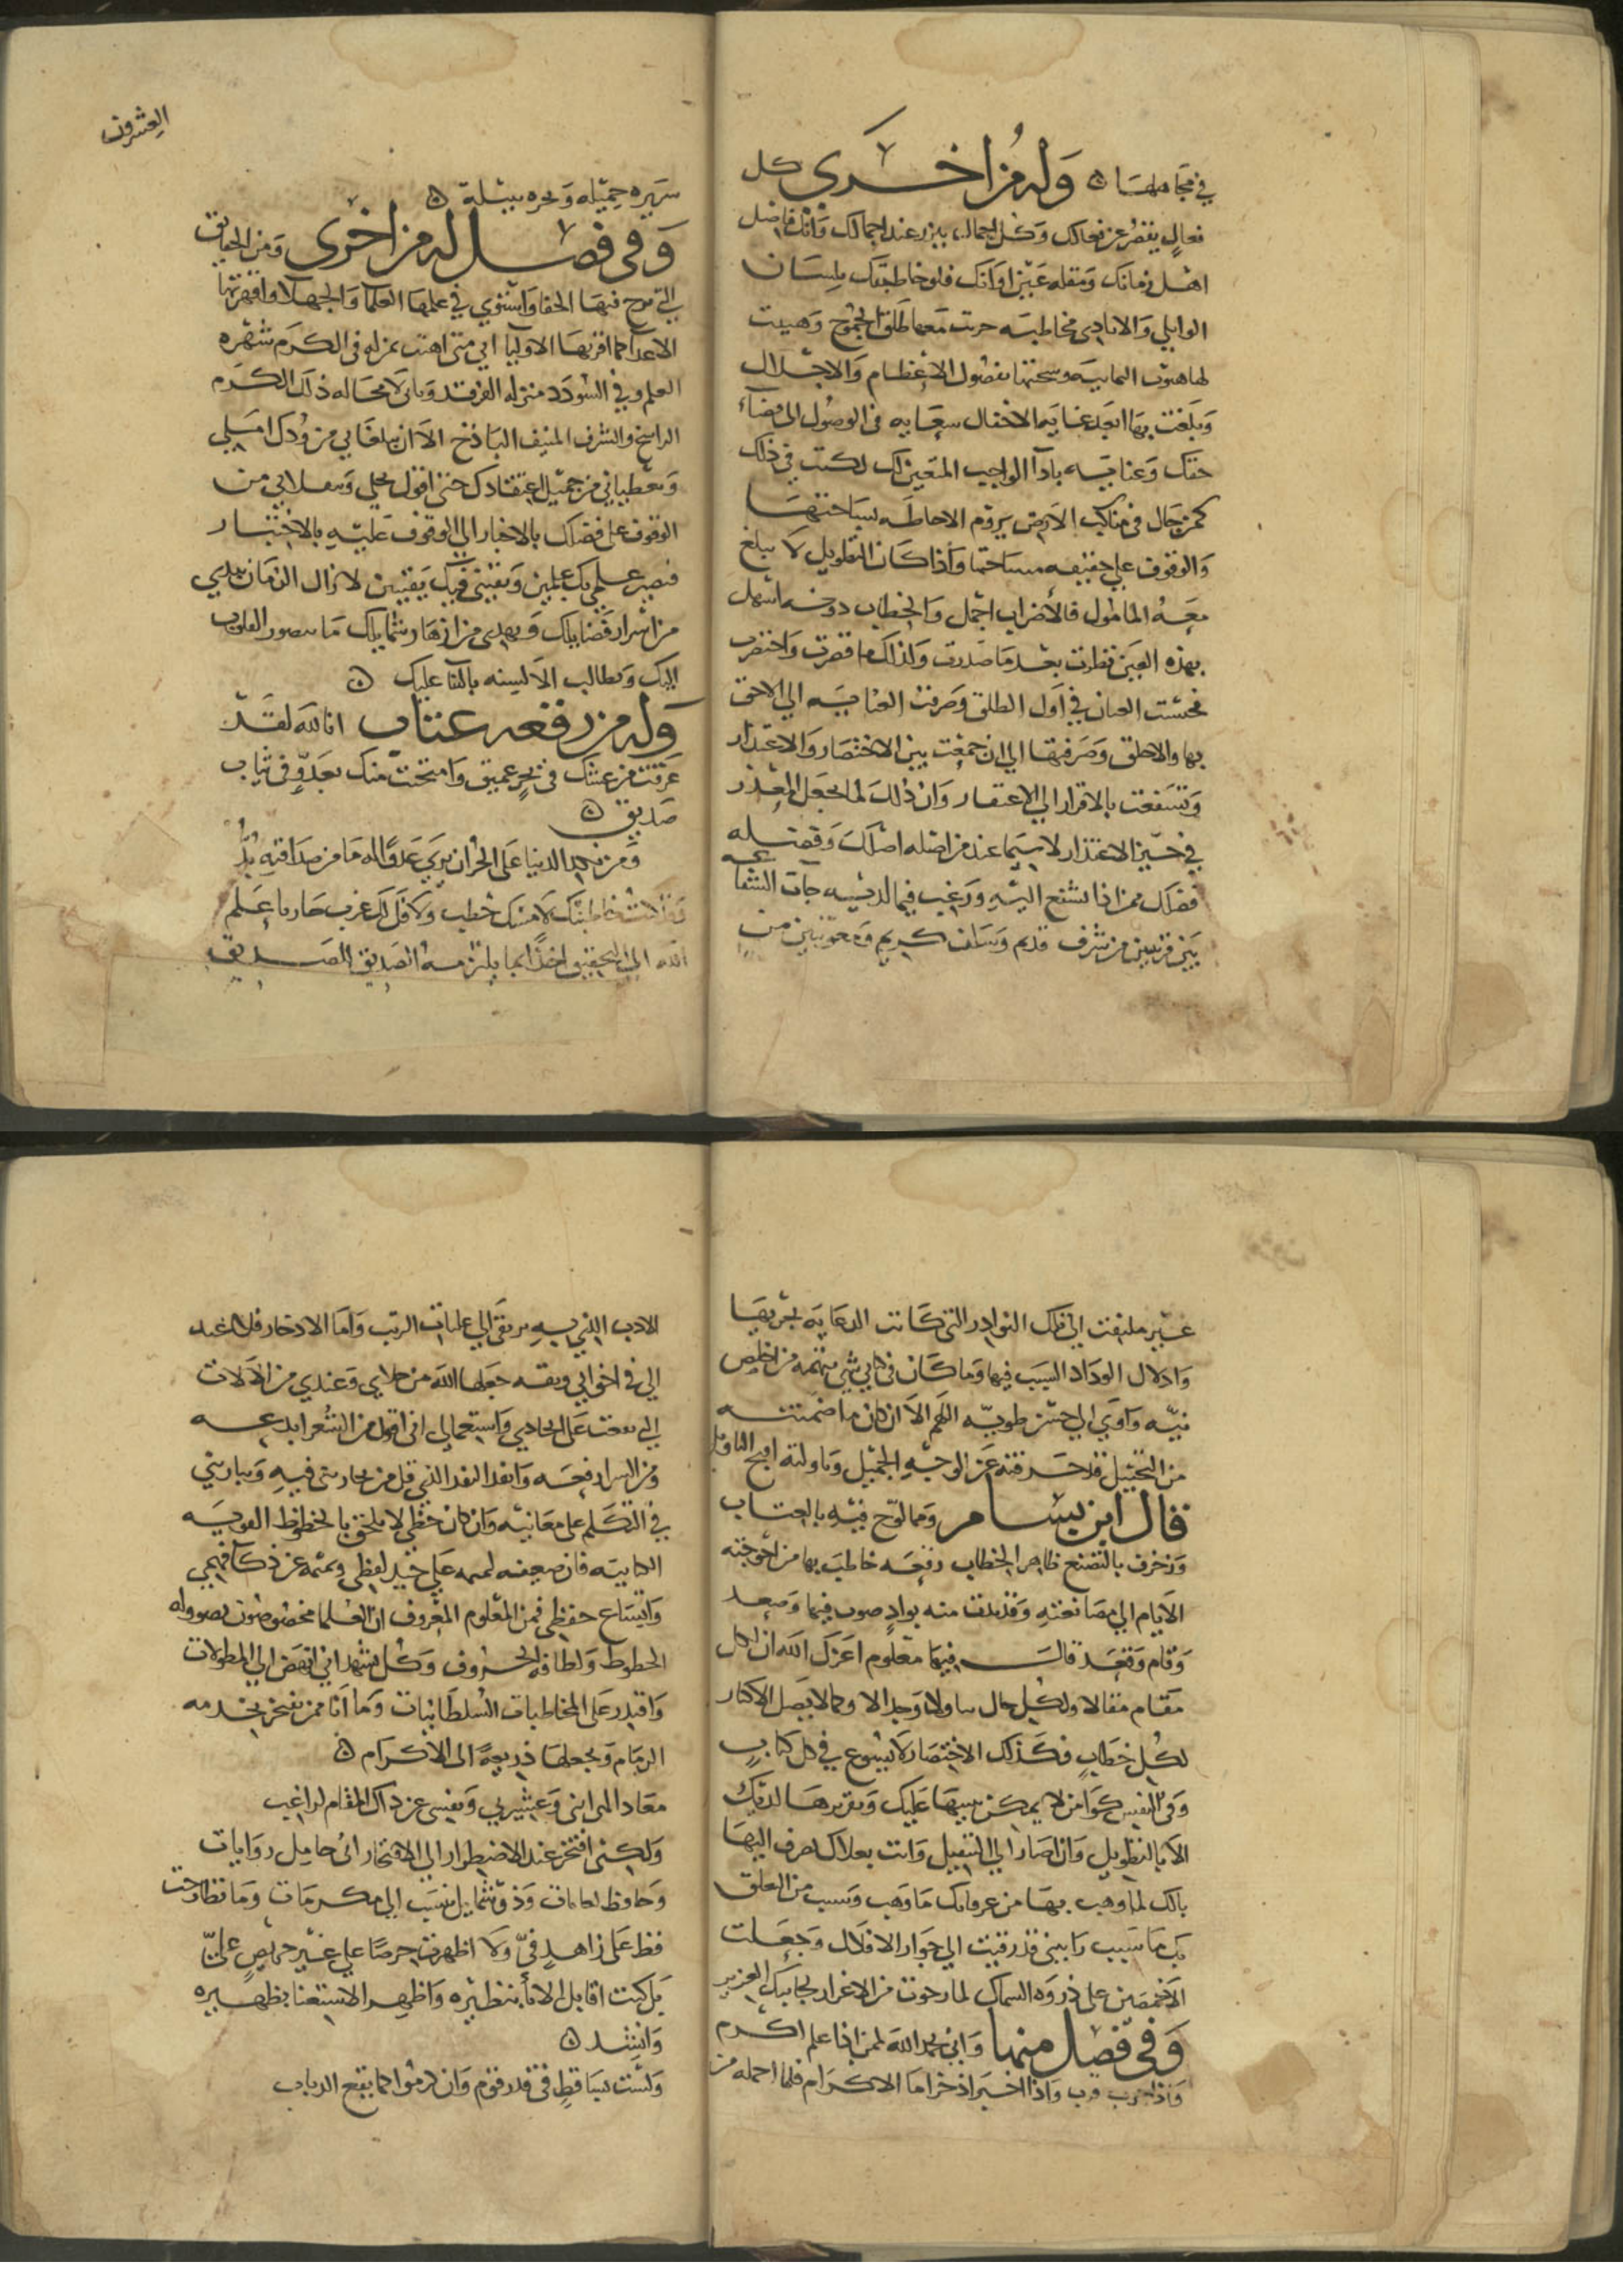 في مجاهلها ۞ وله من اخرى كل
فعال يقصر عن فعالك وكل اجمال ينزر عند اجمالك وانك فاضل
اهل زمانك ومقله عين اوانك فلو خاطبتك بلسان
الوايلي والايادي مخاطبه جرت معها طلق الجموح وهببت
لها هبوب اليمانيه وسحنتها بفصول الاعظام والاجلال
وبلغت بها ابعد غايه الاحتفال سعايه في الوصول الى قضاء
حقك وعنايه بادآ الواجب المتعين لك لكنت في ذلك
كمن جال في مناكب الارض يروم الاحاطه بسياحتها
والوقوف على حقيقه مساحتها واذا كان التطويل لا يبلغ
معه المامول فالاضراب اجمل والخطاب دونه اسهل
بهذه العين نظرت بعد ما صدرت ولذلك ما قصرت واختصرت
فحبست العنان في اول الطلق وصرفت العنايه الى الاحق
بها والاخلق وصرفتها الى ان جمعت بين الاختصار والاعتذار
وتشفعت بالاقرار الى الاغتفار وان ذلك لما يجعل المعذر
في حيز الاعتذار لاسيما عند من اصله اصلك وفضله
فضلك ممن اذا تشفع اليه ورغب فيما لديه جات الشفاعه
بين قربتين من شرف قديم وسلف كريم ومعونتين من
العشرون
سريره جميله وبحره سلة ۞
وفي فصل له من اخرى ومن الحقايق
التي صح فيها الخفا واستوي في علمها العلما والجهلا واقر بها
الاعدا كما اقر بها الاوليا اني متى اهنت بمنزله في الكرم شهره
العلم وفي السودد منزله الفرقد وياتي لا محاله ذلك الكرم
الراسخ والشرف المنيف الباذخ الا ان يبلغاني من ودك املي
ويعطياني من جميل اعتقادك حتى اقول بخلي وينقلاني من
الوقوف على فضلك بالاخبار الى الوقوف عليه بالاختبار
فيصير علمي بك علمين ويقيني فيك يقينين لا زال الزمان يبدي
من اسرار فضايلك ويهدي من ازهار شمايلك ما يصور القلوب
اليك ويطالب الالسنه بالثنا عليك ۞
وله من رقعه عتاب انا لله لقد
غرقت من عتبك في بحر عميق وامتحنت منك بعدو في ثياب
صديق ۞
ومن نكد الدنيا على الحر ان يرى عدوا له ما من صداقته بد
خاطبتك لامنك خطب ولا فل لك غرب جاريا علم
الله الى التحقيق اخذا بما يلتزمه الصديق الصديق
غير ملتفت الى تلك النوادر التي كانت الدعابه بحريها
وادلال الوداد السبب فيها وما كان في كتابي شي يتهمه من اخلص
نيه واوى الى حسن طويه اللهم الا ان كان ما ضمنته
من التجنيل قد حرفته عن الوجه الجميل وتاولته اقبح التاويل
قال ابن بسام ومما لوح فيه بالعتاب
وزخرف بالتصنع ظاهر الخطاب رقعه خاطب بها من احوجته
الايام الى مصانعته وقد بدت منه بوادر صوب فيها وصعد
وقام وقعد قال فيها معلوم اعزك الله ان لكل
مقام مقالا ولكل حال وجدالا وكما لا يصل الاكثار
لكل خطاب فكذلك الاختصار لا يسوغ في كل كتاب
وفي النفس كوامن لا يمكن تبيينها عليك وتقريرها لديك
الا بالتطويل وان اصار الى التثقيل وانت بعلاك صرف اليها
بالك لما وهب بها من عرفانك ما وهب وسبب من العلق
بك ما سبب رايتني قد رقيت الى جوار الافلاك وجعلت
الاخمصين على ذروه السماك لما رجوت من الاعزاز بجانبك العزيز
وفي فصل منها واني بحمد الله لمن اذا علم اكرم
واذا جرب قرب واذا اختبر اذخر اما الاكرام فلما احمله من
الادب الذي به يرتقى الى عليات الرتب واما الادخار فلما عهد
الي في اخواني وبقه جعلها الله من حلاي وعندي من الالات
التي بعثت على اتحادي واستعمالي اني اقول من الشعر ابدعه
ومن النثر ارفعه وانقد النقد الذي قل من يجاريني فيه ويباريني
في التكلم على معانيه وان كان حظي لا يلحق بالحظوظ القويه
الكتابيه فان ضعفه لتممه على جيد لفظي ويتمه عن ذكا فهمي
واتساع حفظي فمن المعلوم المعروف ان العلما مخصوصون بصووله
الخطوط ولطافه الحروف وكل يشهد اني انهض الى المطولات
واقتدر على المخاطبات السلطانيات وما انا ممن يفخر بخدمه
الزمام ويجعلها ذريعه الى الاكرام ۞
معاد المرانى وعشيرتي ونفسي عن ذاك المقام لراغب
ولكني افتخر عند الاضطرار الى الافتخار اني حامل روايات
وحافظ لغات وذو شمايل تنسب الى مكرمات وما تطارحت
قط على زاهد في ولا اظهرت حرصا على غير حريص علي
بل كنت اقابل الابا بنظيره واظهر الاستغنا بظهيره
وانشد ۞
ولست بساقط في قدر قوم وان كرموا كما يقع الذباب